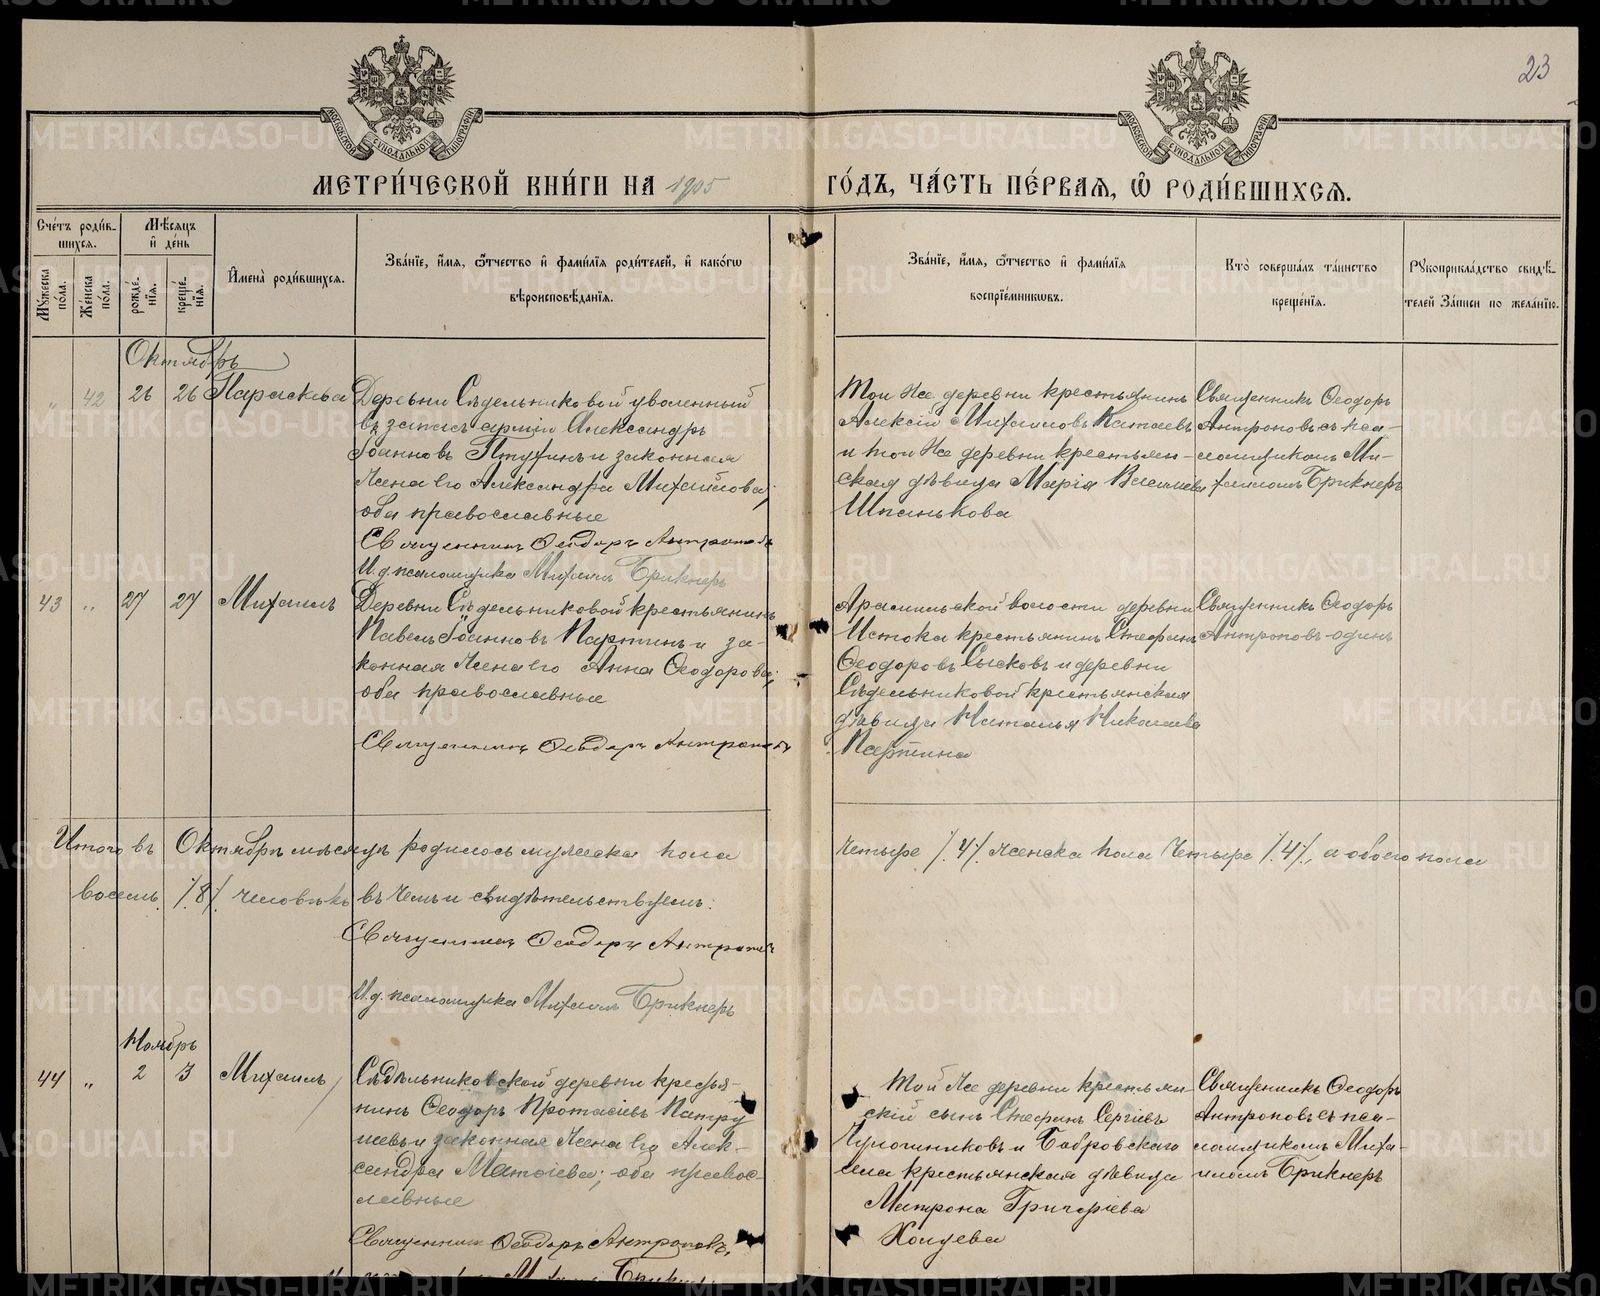 23
МЕТРИ́ЧЕСКОЙ КНИ́ГИ НА 1905 ГО́ДЪ, ЧА́СТЬ ПЕ́РВАѦ, Ѡ҆ РОДИ́ВШИХСѦ.
Сче́тъ роди́в-
шихсѧ.
Мѣ́сѧцъ
и҆ де́нь
Мꙋ́жеска по́ла.
Же́нска по́ла.
рожде́-
нїѧ.
креще́-
нїѧ.
И҆мена̀ роди́вшихсѧ.
Зва́нїе, и҆́мѧ, ѻ҆́тчество и҆ фами́лїѧ роди́телей, и҆ како́гѡ
вѣроисповѣ́данїѧ.
Зва́нїе, и҆́мѧ, ѻ҆́тчество и҆ фами́лїѧ
воспрїе́мникѡвъ.
Кто̀ соверша́лъ та́инство
креще́нїѧ.
Рꙋкоприкла́дство свидѣ́-
телей За́писи по жела́нїю.
Октябрь
" 42 26 26 Параскева
Деревни Сѣдельниковой уволенный
въ запасъ армiи Александръ
Iоанновъ Птухинъ и законная
жена его Александра Михайлова;
оба православные
Священникъ Ѳеодоръ Антроповъ
И.д. псаломщика Михаилъ Брикнеръ
Той же деревни крестьянинъ
Алексiй Михаиловъ Катаевъ
и той же деревни крестьян-
ская дѣвица Марiя Васильева
Шпанькова
Священникъ Ѳеодоръ
Антроповъ съ пса-
ломщикомъ Ми-
хаиломъ Брикнеръ
43 " 27 27 Михаилъ
Деревни Сѣдельниковой крестьянинъ
Павелъ Iоанновъ Партинъ и за-
конная жена его Анна Ѳеодорова;
оба православные
Священникъ Ѳеодоръ Антроповъ
Арамильской волости деревни
Истока крестьянинъ Стефанъ
Ѳеодоровъ Сысковъ и деревни
Сѣдельниковой крестьянская
дѣвица Наталья Николаева
Партина
Священникъ Ѳеодоръ
Антроповъ один
Итого въ Октябрѣ мѣсяцѣ родилось мужеска пола четыре /.4/. женска пола четыре /.4/., а обоего пола
восемь /.8/. человѣкъ въ чемъ и свидѣтельствуемъ:
Священникъ Ѳеодоръ Антроповъ
И.д. псаломщика Михаилъ Брикнеръ
Ноябрь
44 " 2 3 Михаилъ
Сѣдельниковской деревни крестья-
нинъ Ѳеодоръ Протасiевъ Патру
шевъ и законная жена его Алек-
сандра Матѳiева; оба правос-
лавные
Священникъ Ѳеодоръ Антроповъ,
Михаилъ Брикнеръ
Той же деревни крестьян
скiй сынъ Стефанъ Сергiевъ
Чулошниковъ и Бобровскаго
села крестьянская дѣвица
Матрона Григорiева
Священникъ Ѳеодоръ
Антроповъ съ пса-
ломщикомъ Миха-
иломъ Брикнеръ
METRIKI.GASO-URAL.RU